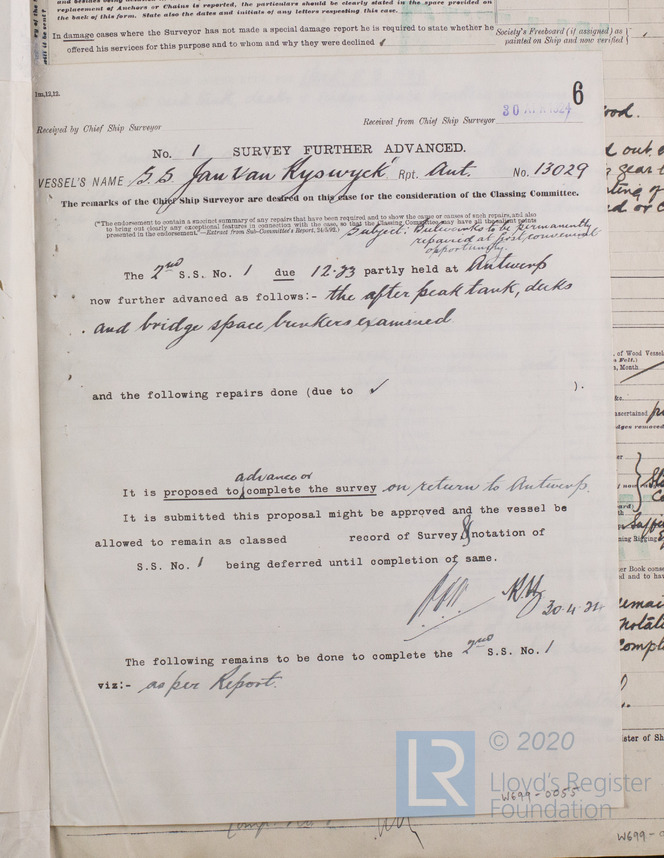 replacement of Anchors or Chains is reported, the particulars should be clearly stated in the space provided on
the back of this form. State also the dates and initials of any letters respecting this case.
In damage cases where the Surveyor has not made a special damage report he is required to state whether he
offered his services for this purpose and to whom and why they were declined ✓
Society's Freeboard (if assigned) as
painted on Ship and now verified
1m,12,12.
6
30 APR 1924
Received by Chief Ship Surveyor
Received from Chief Ship Surveyor
No. 1 SURVEY FURTHER ADVANCED.
VESSEL'S NAME S.S. Jan Van Ryswyck Rpt. Ant. No. 13029
The remarks of the Chief Ship Surveyor are desired on this case for the consideration of the Classing Committee.
(*The endorsement to contain a succinct summary of any repairs that have been required and to show the cause or causes of such repairs, and also
to bring out clearly any exceptional features in connection with the case, so that the Classing Committee may have all the salient points
presented in the endorsement."—Extract from Sub-Committee's Report,
Subject: Bulwarks to be permanently
repaired at first convenient
opportunity.
The 2nd S.S. No. 1 due 12.23 partly held at Antwerp
now further advanced as follows:- the after peak tank, decks
and bridge space bunkers examined
and the following repairs done (due to ✓ ).
advance or
It is proposed to complete the survey on return to Antwerp.
It is submitted this proposal might be approved and the vessel be
allowed to remain as classed record of Survey & notation of
S.S. No. 1 being deferred until completion of same.
30.4.24
The following remains to be done to complete the 2nd S.S. No. 1
viz:- as per Report.
LR
© 2020
Lloyd's Register
Foundation
W699-0055